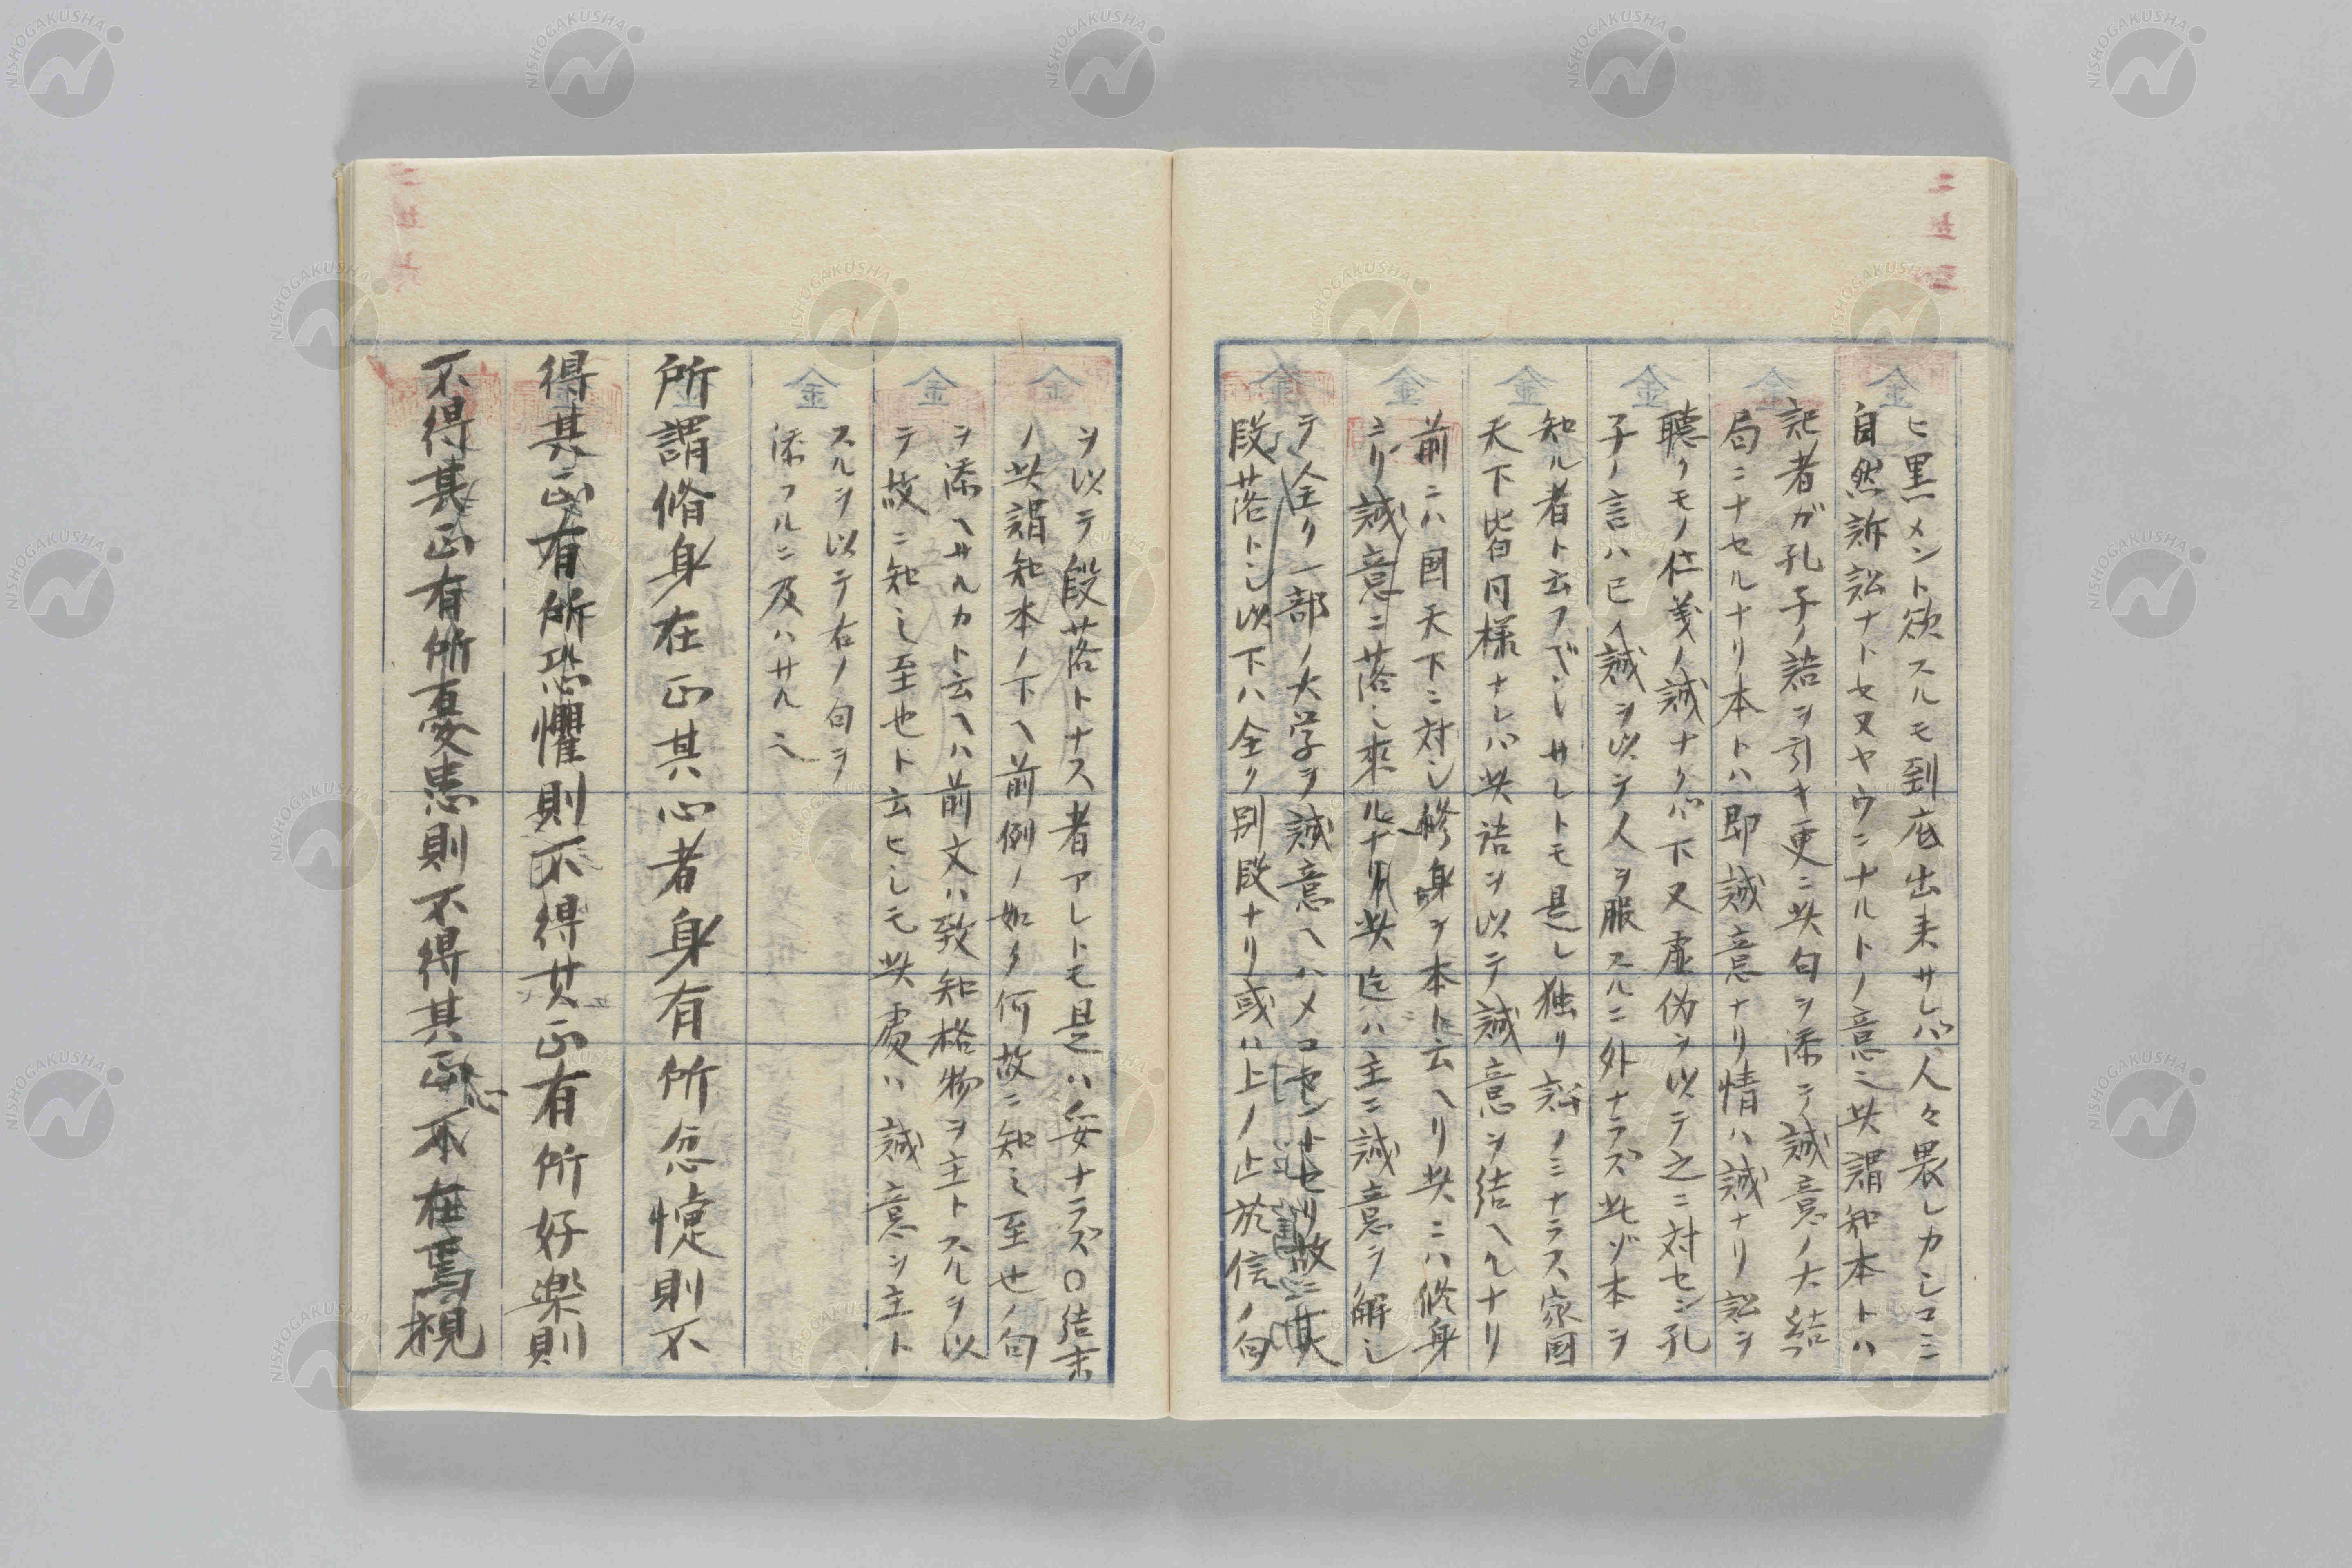 ヒ黒メント欲スルモ到底出来サレバ人々畏レカシコミ
自然訴訟ナトセヌヤウニナルトノ意ニ此謂知本トハ
記者ガ孔子ノ語ヲ引キ更ニ此句ヲ添テ誠意ノ大結
局ニナセルナリ本トハ即誠意ナリ情ハ誠ナリ訟ヲ
聴クモノ仁義ノ誠ナクバ下又虚偽ヲ以テ之ニ対セン孔
子ノ言ハ已ノ誠ヲ以テ人ヲ服スルニ外ナラズ此ゾ本ヲ
知ル者ト云フベシサレトモ是レ独リ訟ノミナラス家国
天下皆同様ナレバ此語ヲ以テ誠意ヲ結ヘルナリ
前ニハ国天下ニ対シ修身ヲ本ト云ヘリ此ニハ修身
ヨリ誠意ニ落シ来ルナリ此迄ハ主ニ誠意ヲ解シ
テ全ク一部ノ大学ヲ誠意ヘハメコセリ故ニ其
段落トシ以下ハ全ク別段ナリ或ハ上ノ止於信ノ句
ヲ以テ段落トナス者アレトモ是ハ妥ナラズ〇結末
ノ此謂知本ノ下ヘ前例ノ如ク何故ニ知之至也ノ句
ヲ添ヘサルカト云ヘハ前文ハ致知格物ヲ主トスルヲ以
テ故ニ知之至也ト云ヒシモ此處ハ誠意ヲ主ト
スルヲ以テ右ノ句ヲ
添フルニ及ハサル也
所謂脩身在正其心者身有所忿懥則不
得其正有所恐懼則不得其正有所好楽則
不得其正有所憂患則不得其正心不在焉視
金
NISHOGAKUSHA